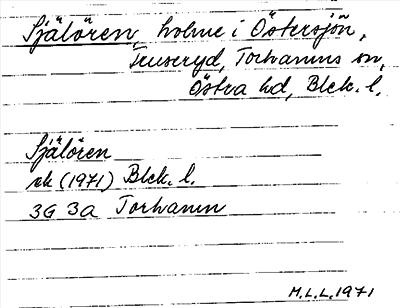 Själören, holme i Östersjön,
Tuseryd, Torhamns sn,
Östra hd, Blek. l.
Själören
ek (1971) Blek. l.
3G 3a Torhamn
M.L.L. 1971